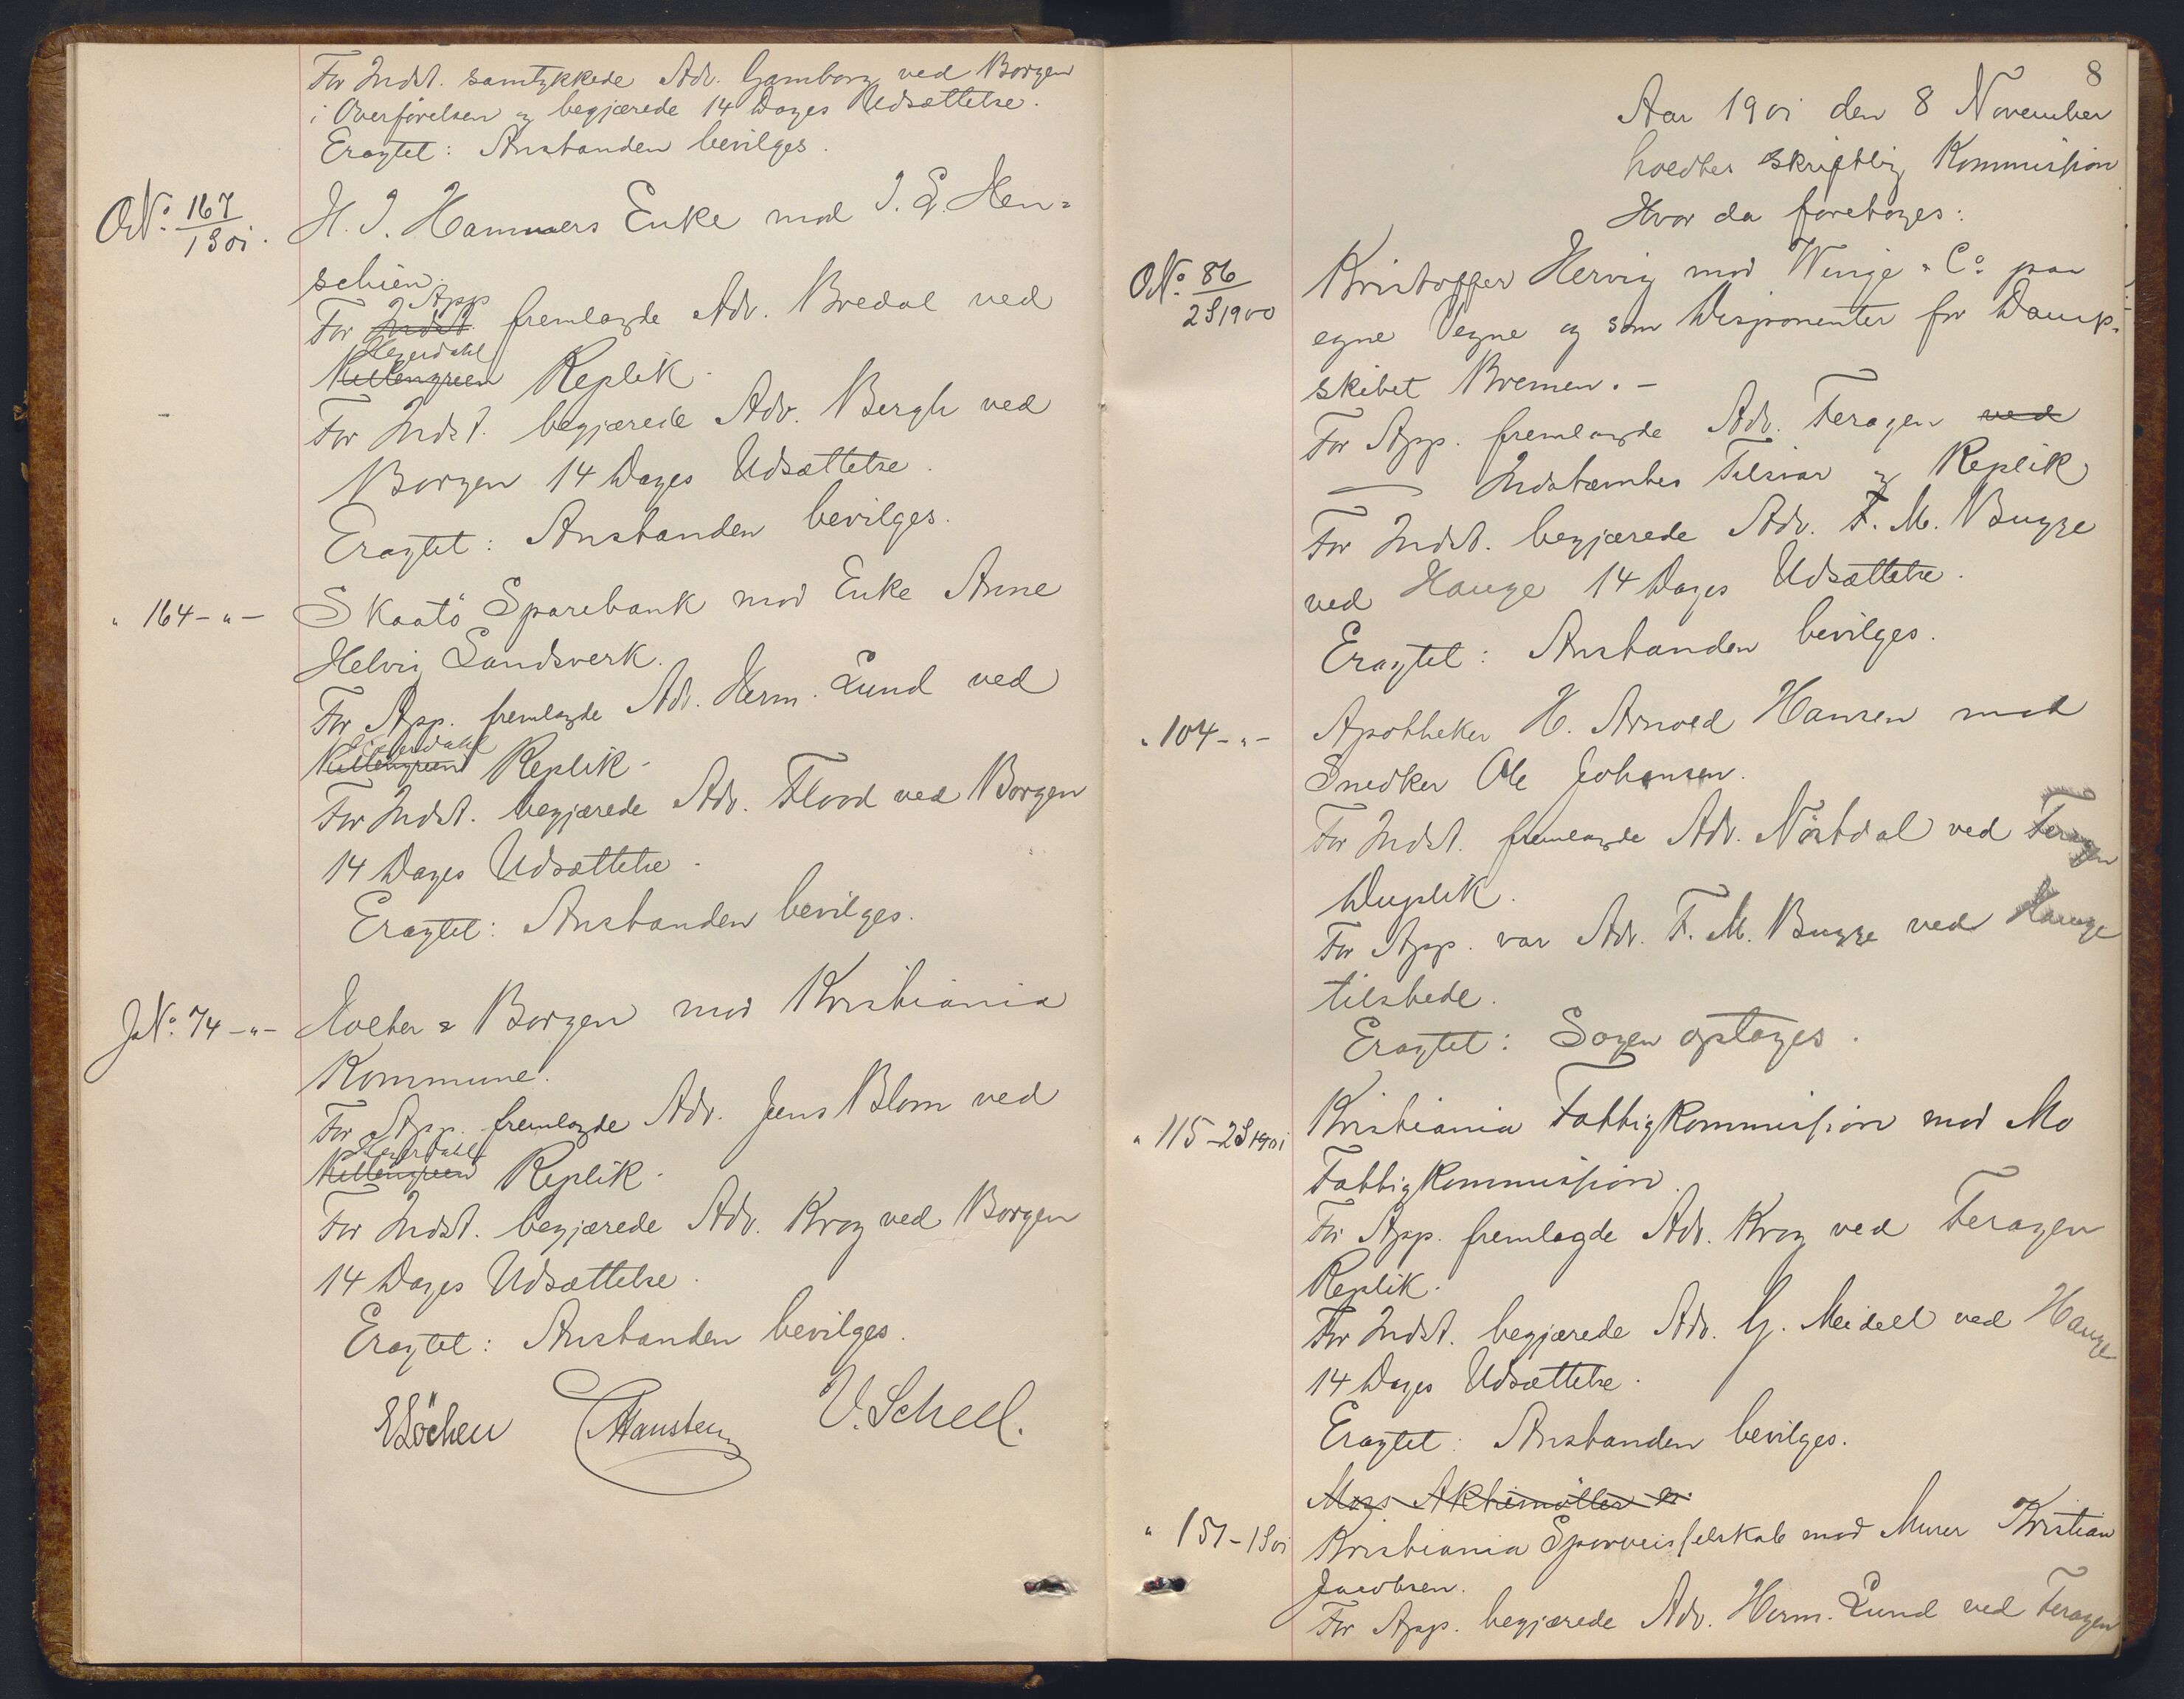 For Indst. samtykkede Adv. Gamborg ved Borgen
i Overførelsen og begjærede 14 Dages Udsættelse.
Eragtet: Anstanden bevilges.
O№ 167/1901. H. J. Hammers Enke mod J. L. Hen-
schien.
App
For Indst. fremlagde Adv. Bredal ved
Heyerdahl
Killengreen Replik.
For Indst. begjærede Adv. Bergh ved
Borgen 14 Dages Udsættelse.
Eragtet: Anstanden bevilges.
" 164-"- Skaatö Sparebank mod Enke Anne
Helvig Landsverk.
For App. fremlagde Adv. Herm. Lund ved
Heyerdahl
Killengreen Replik.
For Indst. begjærede Adv. Flood ved Borgen
14 Dages Udsættelse.
Eragtet: Anstanden bevilges.
J№ 74-"- Holter & Borgen mod Kristiania
Kommune.
For App. fremlagde Adv. Jens Blom ved
Heyerdahl
Killengreen Replik.
For Indst. begjærede Adv. Krog ved Borgen
14 Dages Udsættelse.
Eragtet: Anstanden bevilges.
E Löchen Hansteen V. Scheel.
8
Aar 1901 den 8 November
holdtes skriftlig Kommission
Hvor da foretoges:
O№ 86/2S1900 Kristoffer Hervig mod Winge & Co paa
egne Vegne og som Disponenter for Damp-
skibet Bremen.-
For App. fremlagde Adv. Feragen ved
— Indstæmtes Tilsvar og Replik
For Indst. begjærede Adv. F. M. Bugge
ved Hauge 14 Dages Udsættelse.
Eragtet: Anstanden bevilges.
" 104-"- Apotheker H. Arnold Hansen mod
Snedker Ole Johansen.
For Indst. fremlagde Adv. Nörtdal ved Feragen
Duplik.
For App. var Adv. F. M. Bugge ved Hauge
tilstede.
Eragtet: Sagen optages.
" 115-2S1901 Kristiania Fattigkommission mod Mo
Fattigkommission.
For App. fremlagde Adv. Krog ved Feragen
Replik.
For Indst. begjærede Adv. G. Meidell ved Hauge
14 Dages Udsættelse.
Eragtet: Anstanden bevilges.
Moss Aktiemöller
" 151-1901 Kristiania Sporveisselskab mod Murer Kristian
Jacobsen.
For App. begjærede Adv. Herm. Lund ved Feragen